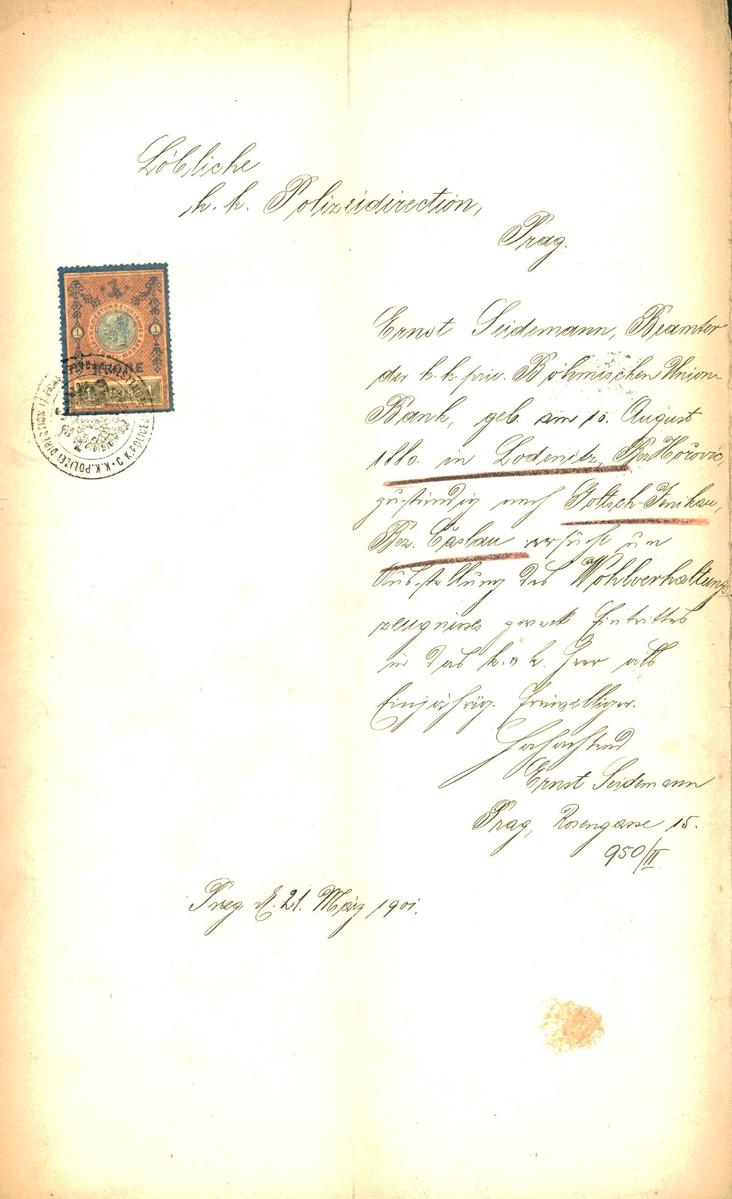 Löbliche
k. k. Polizeidirection,
Prag.
1 1
KRONE
K.K. POLIZEI
Ernst Seidemann, Beamter
der k. k. priv. Böhmischen Union-
Bank, geb. am 10. August
1880. in Lodenitz, Bez. Hořovic,
zuständig nach Goltsch-Jenikau,
Bez. Čáslau ersucht um
Ausstellung des Wohlverhaltungs-
zeugnisses zweck Eintrittes
in das k. u. k. Heer als
Einjährig. Freiwilliger.
Hochachtend
Ernst Seidemann
Prag, Rosengasse 15.
950/II
Prag d. 21. März 1901.